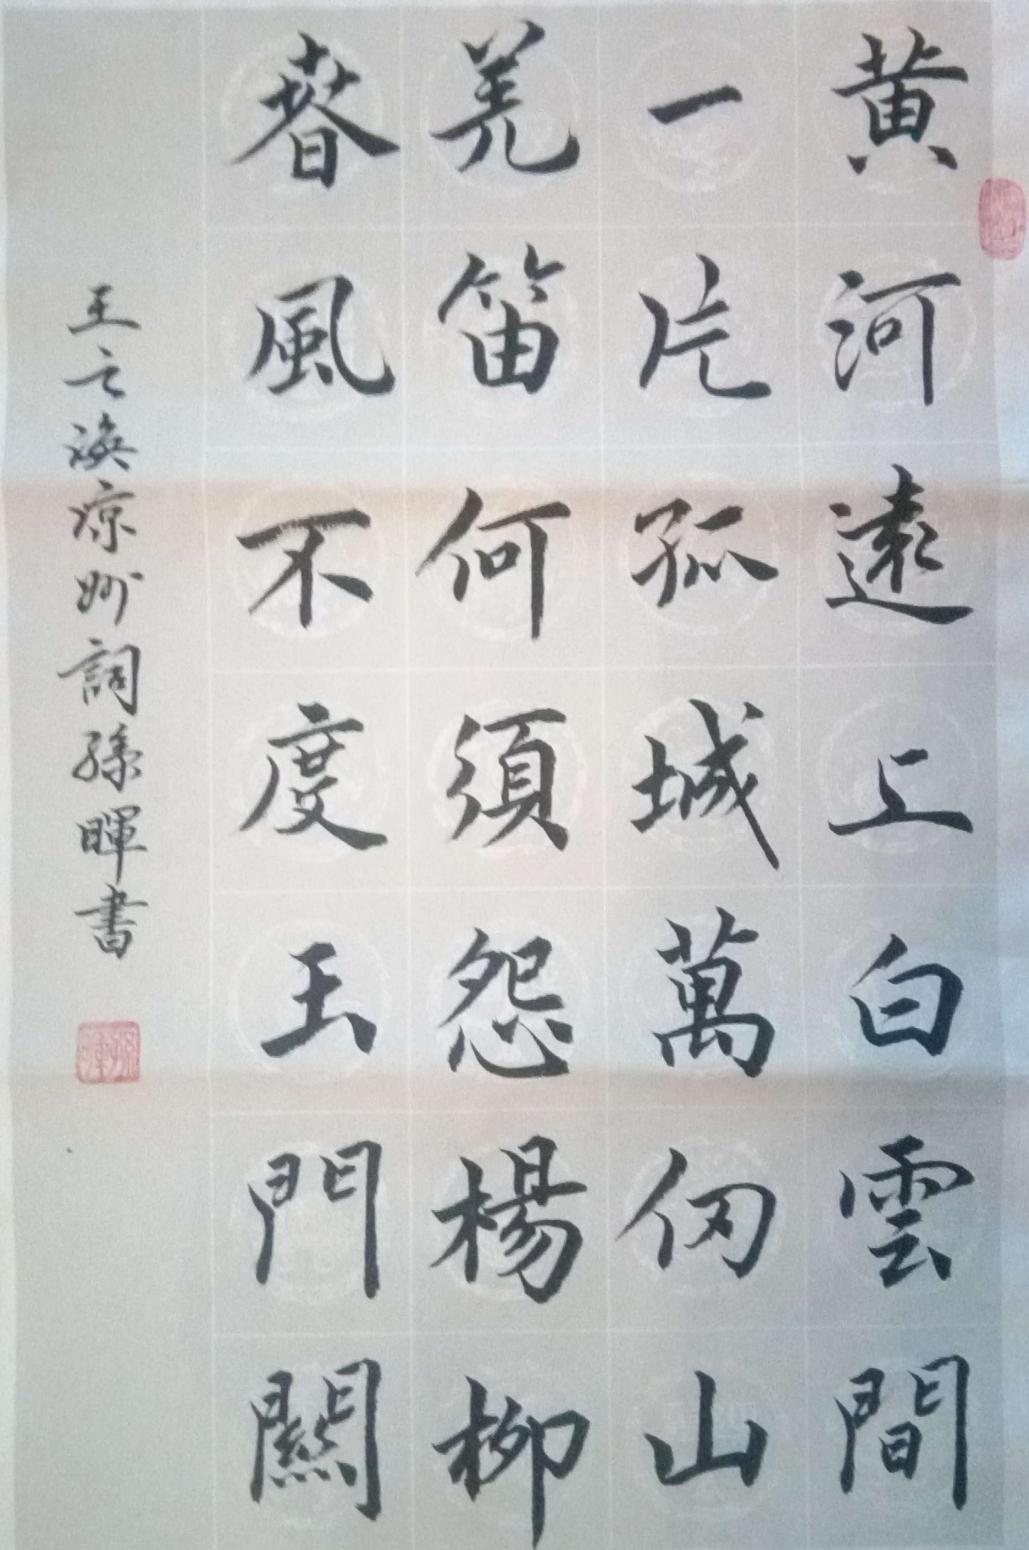 黄河遠上白雲間
一片孤城萬仞山
羌笛何須怨楊柳
春風不度玉門關
王之渙凉州詞孫暉書